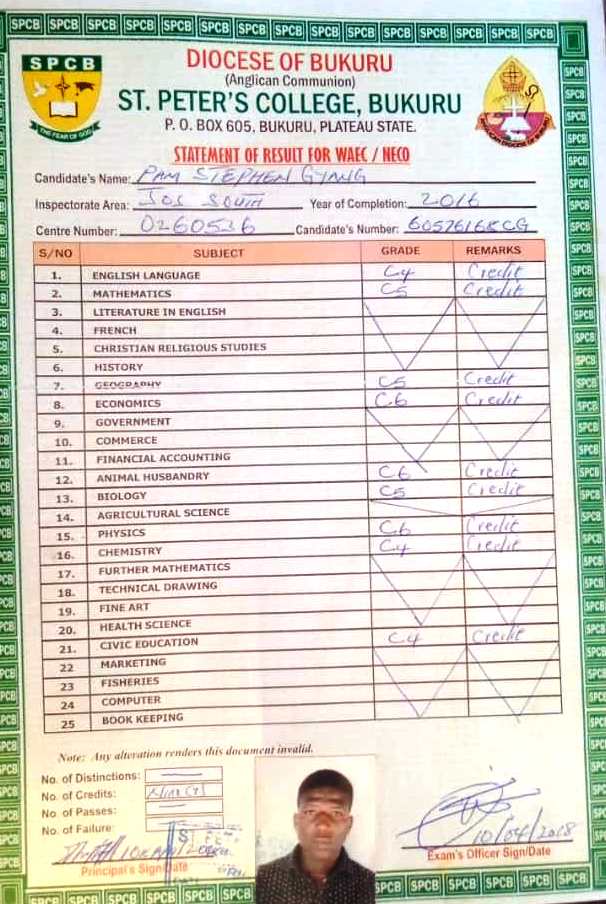 SPCB
THE FEAR OF GOD
DIOCESE OF BUKURU
(Anglican Communion)
ST. PETER'S COLLEGE, BUKURU
P. O. BOX 605, BUKURU, PLATEAU STATE.
ANGLICAN DIOCESE OF BUKURU
STATEMENT OF RESULT FOR WAEC / NECO
Candidate's Name: PAM STEPHEN GYANG
Inspectorate Area: JOS SOUTH Year of Completion: 2016
Centre Number: 0260536 Candidate's Number: 60576168CG
S/NO SUBJECT GRADE REMARKS
1. ENGLISH LANGUAGE C4 Credit
2. MATHEMATICS C5 Credit
3. LITERATURE IN ENGLISH
4. FRENCH
5. CHRISTIAN RELIGIOUS STUDIES
6. HISTORY
7. GEOGRAPHY C5 Credit
8. ECONOMICS C6 Credit
9. GOVERNMENT
10. COMMERCE
11. FINANCIAL ACCOUNTING
12. ANIMAL HUSBANDRY C6 Credit
13. BIOLOGY C5 Credit
14. AGRICULTURAL SCIENCE
15. PHYSICS C6 Credit
16. CHEMISTRY C4 Credit
17. FURTHER MATHEMATICS
18. TECHNICAL DRAWING
19. FINE ART
20. HEALTH SCIENCE
21. CIVIC EDUCATION C4 Credit
22 MARKETING
23 FISHERIES
24 COMPUTER
25 BOOK KEEPING
Note: Any alteration renders this document invalid.
No. of Distinctions:
No. of Credits:
No. of Passes:
No. of Failure:
10/04/2018
Principal's Sign/Date
Exam's Officer Sign/Date